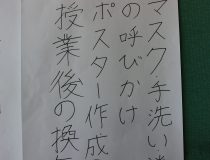 マスク手洗い
の呼びかけ
ポスター作成
授業後の換